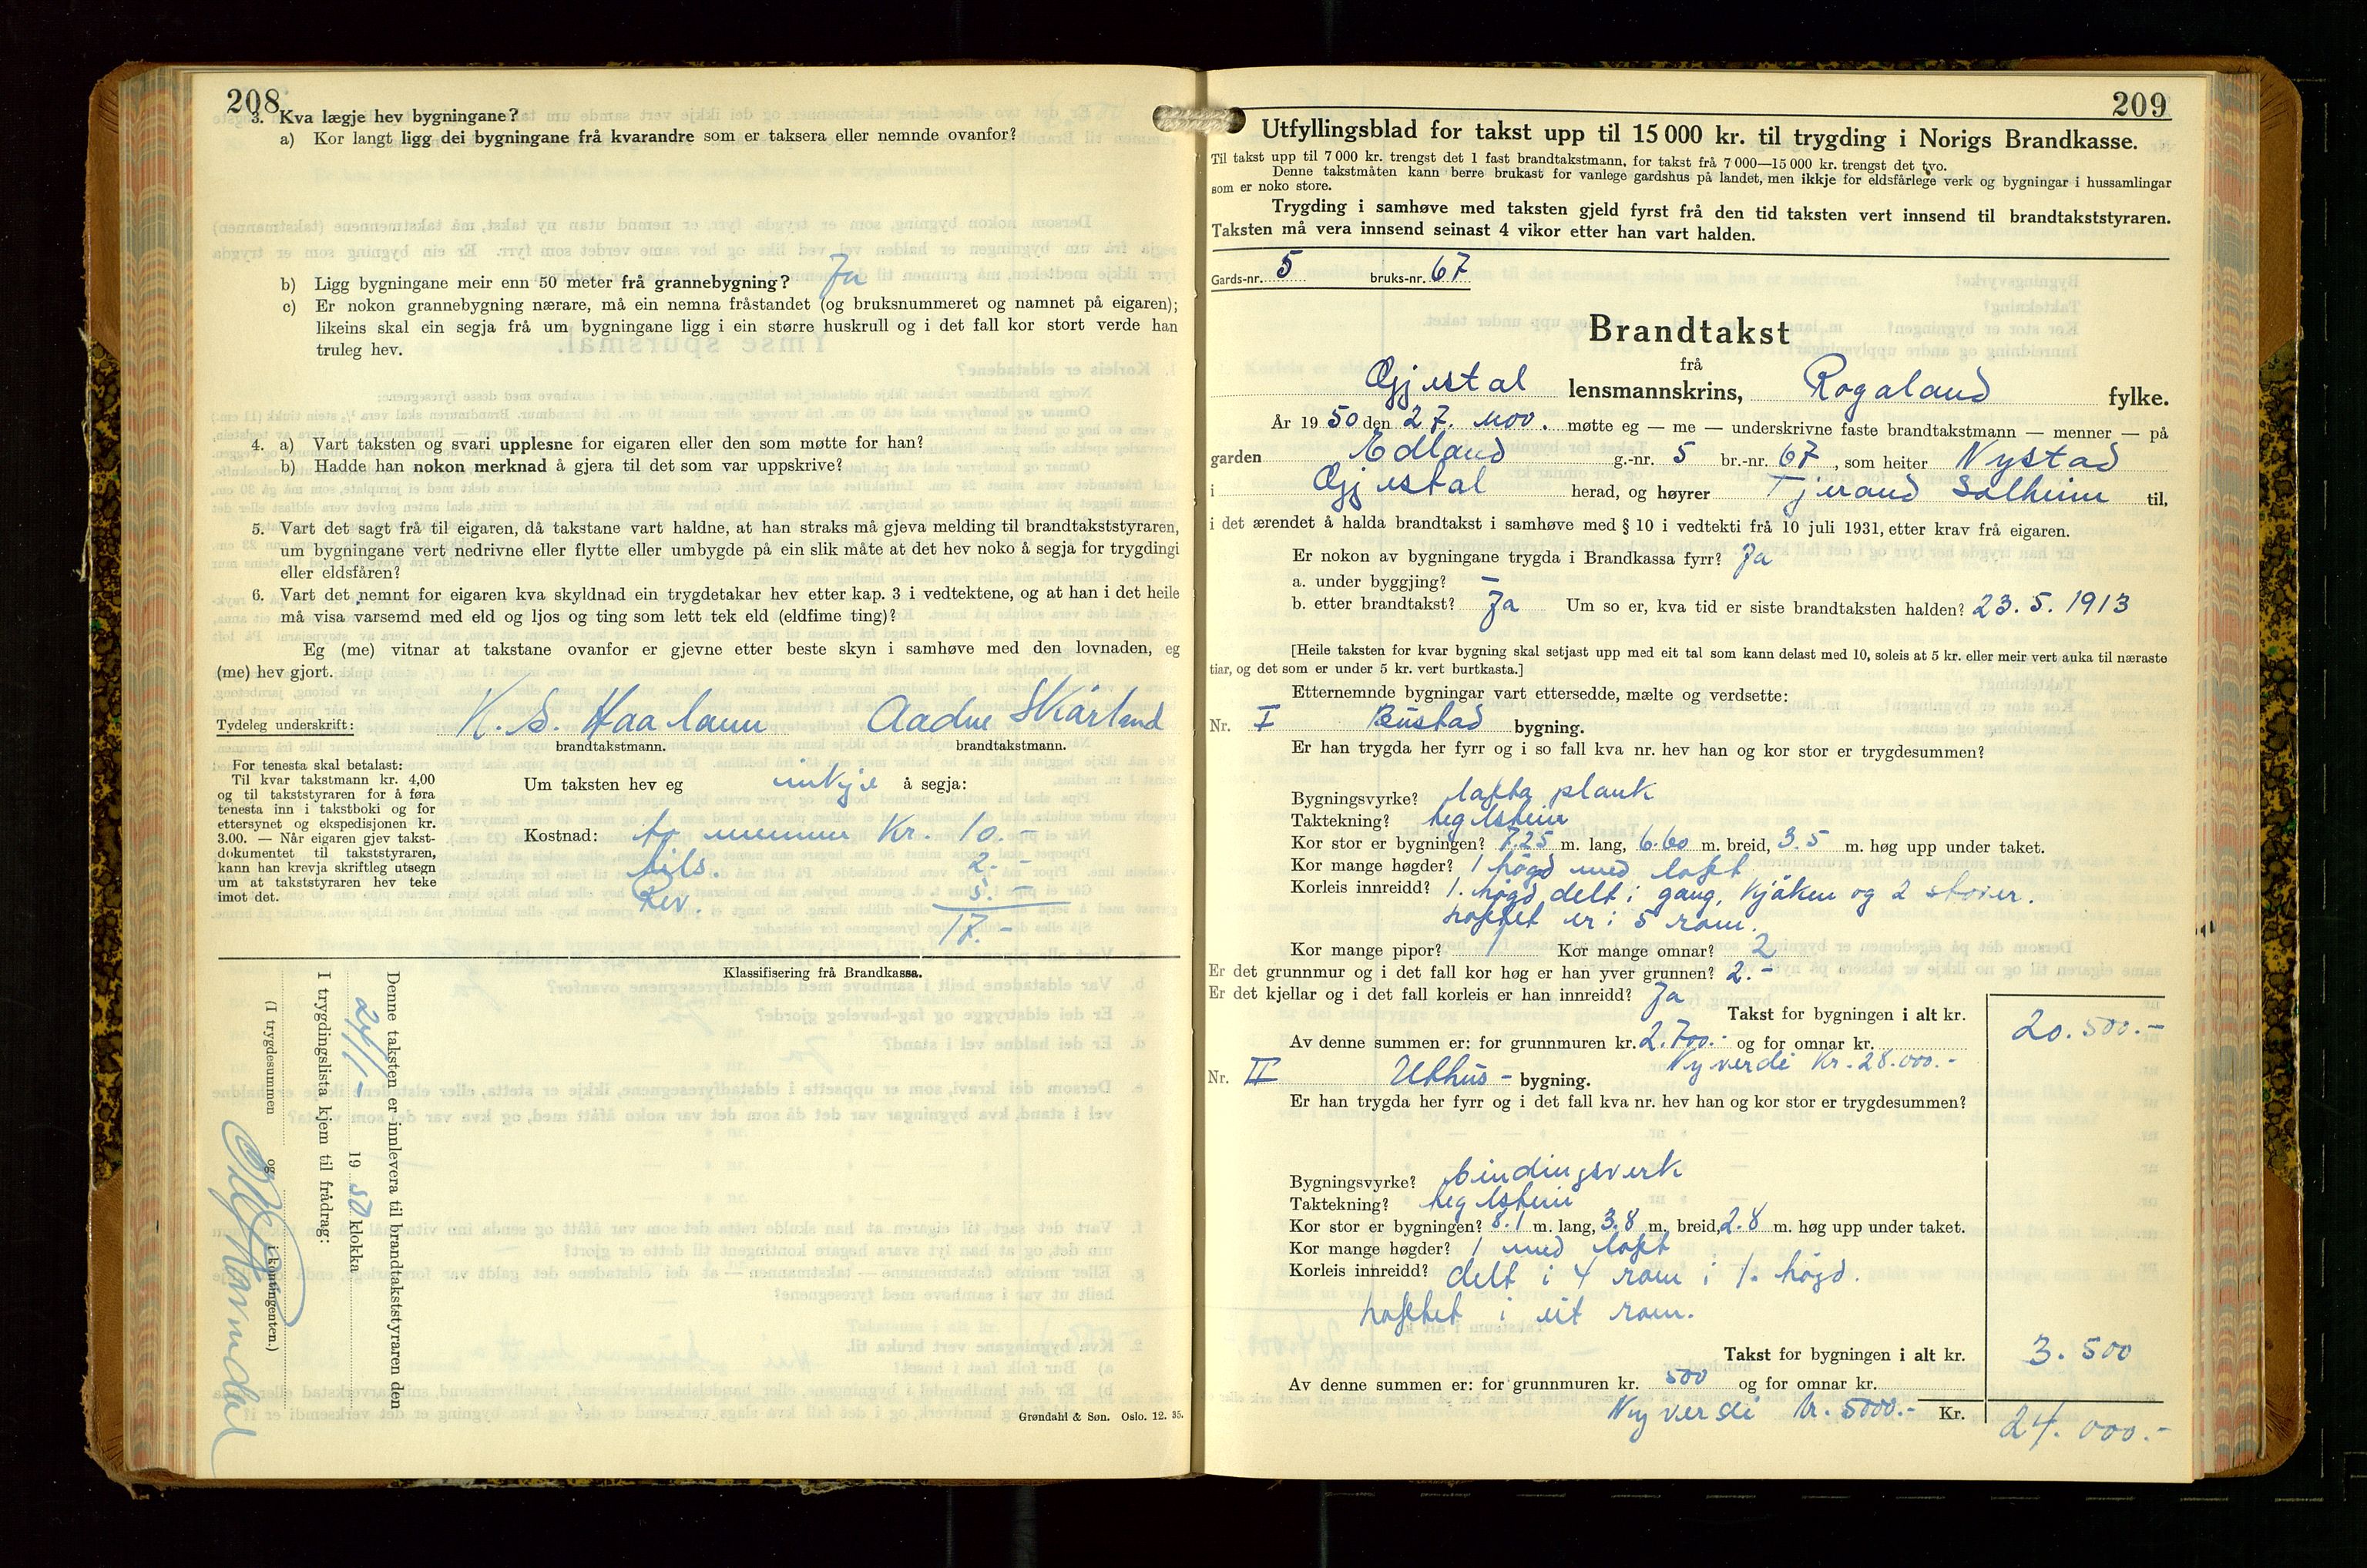 208
3. Kva lægje hev bygningane?
a) Kor langt ligg dei bygningane frå kvarandre som er taksera eller nemnde ovanfor?
b) Ligg bygningane meir enn 50 meter frå grannebygning? Ja
c) Er nokon grannebygning nærare, må ein nemna fråstandet (og bruksnummeret og namnet på eigaren);
likeins skal ein segja frå um bygningane ligg i ein større huskrull og i det fall kor stort verde han
truleg hev.
4. a) Vart taksten og svari upplesne for eigaren eller den som møtte for han?
b) Hadde han nokon merknad å gjera til det som var uppskrive?
5. Vart det sagt frå til eigaren, då takstane vart haldne, at han straks må gjeva melding til brandtakststyraren,
um bygningane vert nedrivne eller flytte eller umbygde på ein slik måte at det hev noko å segja for trygdingi
eller eldsfåren?
6. Vart det nemnt for eigaren kva skyldnad ein trygdetakar hev etter kap. 3 i vedtektene, og at han i det heile
må visa varsemd med eld og ljos og ting som lett tek eld (eldfime ting)?
Eg (me) vitnar at takstane ovanfor er gjevne etter beste skyn i samhøve med den lovnaden, eg
(me) hev gjort.
Tydeleg underskrift: K. S. Haaland Aadne Skårland
brandtakstmann. brandtakstmann.
For tenesta skal betalast:
Til kvar takstmann kr. 4,00
og til takststyraren for å føra
tenesta inn i takstboki og for
ettersynet og ekspedisjonen kr.
3.00. — Når eigaren gjev takst-
dokumentet til takststyraren,
kann han krevja skriftleg utsegn
um at takststyraren hev teke
imot det.
Um taksten hev eg inkje å segja:
Kostnad: to menner Kr. 10.-
bils. 2.-
Rev. 5.-
17.-
Klassifisering frå Brandkassa.
Denne taksten er innlevera til brandtakststyraren den
19 50 klokka
I trygdingslista kjem til frådrag:
(I trygdesummen og i kontingenten.)
Grøndahl & Søn. Oslo. 12. 35.
209
Utfyllingsblad for takst upp til 15 000 kr. til trygding i Norigs Brandkasse.
Til takst upp til 7 000 kr. trengst det 1 fast brandtakstmann, for takst frå 7 000—15 000 kr. trengst det tvo.
Denne takstmåten kann berre brukast for vanlege gardshus på landet, men ikkje for eldsfårlege verk og bygningar i hussamlingar
som er noko store.
Trygding i samhøve med taksten gjeld fyrst frå den tid taksten vert innsend til brandtakststyraren.
Taksten må vera innsend seinast 4 vikor etter han vart halden.
Gards-nr. 5 bruks-nr. 67
Brandtakst
frå
Gjestal lensmannskrins, Rogaland fylke.
År 19 50 den 27. nov. møtte eg — me — underskrivne faste brandtakstmann — menner — på
garden Edland g.-nr. 5 br.-nr. 67, som heiter Nystad
i Gjestal herad, og høyrer Tjerand Solheim til,
i det ærendet å halda brandtakst i samhøve med § 10 i vedtekti frå 10 juli 1931, etter krav frå eigaren.
Er nokon av bygningane trygda i Brandkassa fyrr? Ja
a. under byggjing? —
b. etter brandtakst? Ja Um so er, kva tid er siste brandtaksten halden? 23. 5. 1913
[Heile taksten for kvar bygning skal setjast upp med eit tal som kann delast med 10, soleis at 5 kr. eller meir vert auka til næraste
tiar, og det som er under 5 kr. vert burtkasta.]
Etternemnde bygningar vart ettersedde, mælte og verdsette:
Nr. I Bustad bygning.
Er han trygda her fyrr og i so fall kva nr. hev han og kor stor er trygdesummen?
Bygningsvyrke? lafta plank
Taktekning? teglstein
Kor stor er bygningen? 7.25 m. lang, 6.60 m. breid, 3.5 m. høg upp under taket.
Kor mange høgder? 1 högd med loft
Korleis innreidd? 1. högd delt i gang, kjöken og 2 stover.
loftet er i 5 rom.
Kor mange pipor? 1 Kor mange omnar? 2
Er det grunnmur og i det fall kor høg er han yver grunnen? 2.-
Er det kjellar og i det fall korleis er han innreidd? Ja
Takst for bygningen i alt kr. 20.500.-
Av denne summen er: for grunnmuren kr. 2.700.- og for omnar kr.
Ny verdi Kr. 28.000.-
Nr. II Uthus - bygning.
Er han trygda her fyrr og i det fall kva nr. hev han og kor stor er trygdesummen?
Bygningsvyrke? bindingsverk
Taktekning? teglstein
Kor stor er bygningen? 8.1 m. lang, 3.8 m. breid, 2.8 m. høg upp under taket.
Kor mange høgder? 1 med loft
Korleis innreidd? delt i 4 rom i 1. högd.
loftet i eit rom.
Takst for bygningen i alt kr. 3.500
Av denne summen er: for grunnmuren kr. 500 og for omnar kr.
Ny verdi kr. 5000.- Kr. 24.000.-